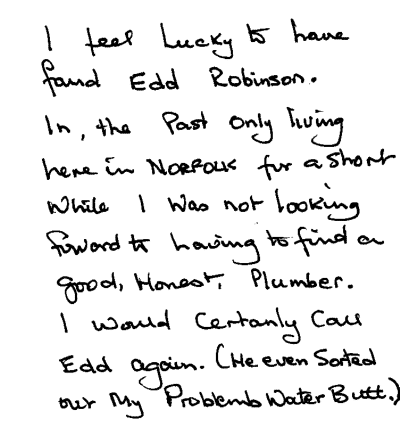 I feel Lucky to have
found Edd Robinson.
In, the Past only living
here in NORFOLK for a short
While I Was not looking
forward to having to find a
good, Honest, Plumber.
I would Certanly Call
Edd again. (He even Sorted
out My Problemb Water Butt.)